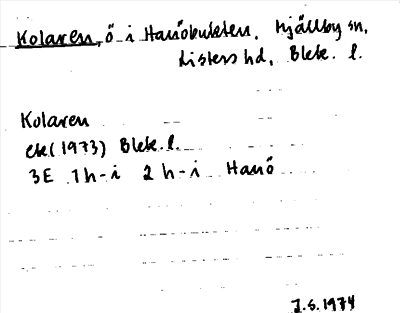 Kolaren, ö i Hanöbukten, Mjällby sn,
Listers hd, Blek. l.
Kolaren
ek (1973) Blek. l.
3E 1h-i 2h-i Hanö
J.S. 1974